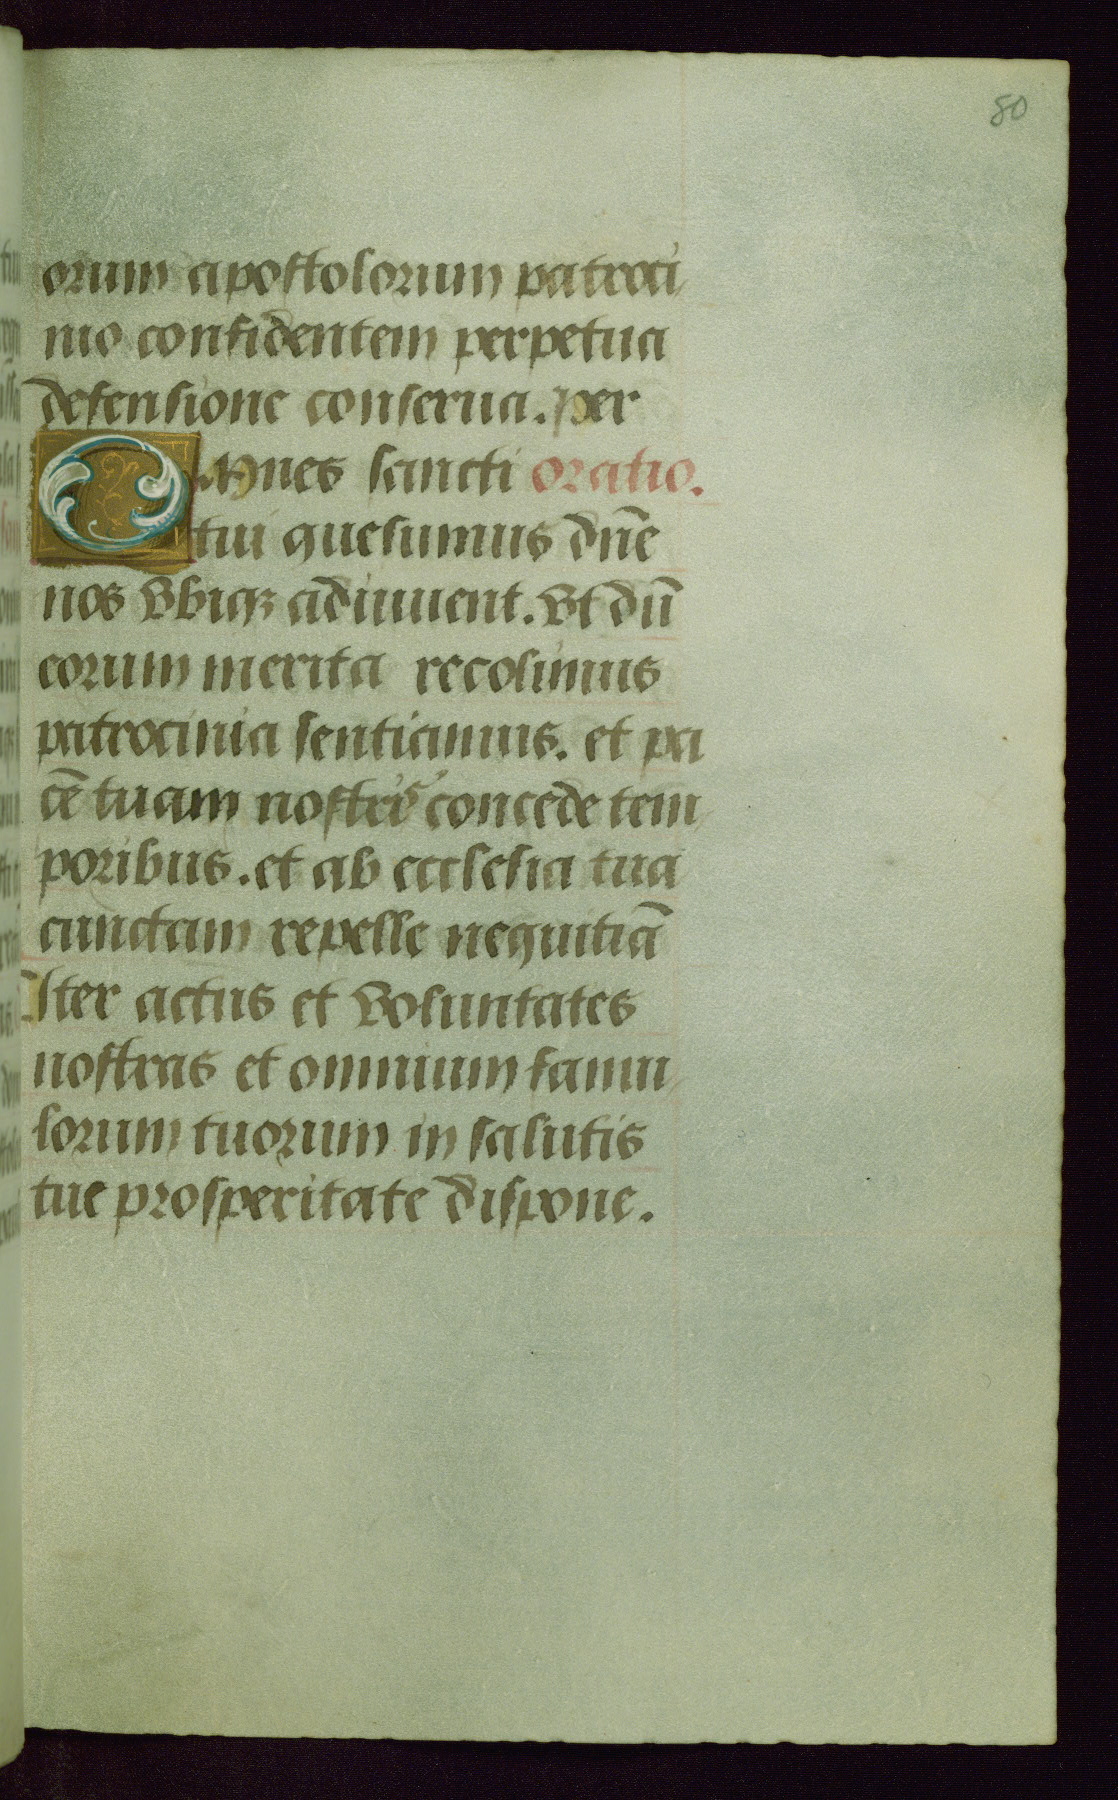 80
orum apostolorum patroci
nio confidentem perpetua
defensione conserua. per
OMnes sancti oratio.
tui quesumus dn̄e
nos vbiqꝫ adiuuent. vt dū
eorum merita recolimus
patrocinia sentiamus. et pa
cē tuam nostris concede tem
poribus. et ab ecclesia tua
cunctam repelle nequitiā
Iter actus et voluntates
nostras et omnium famu
lorum tuorum in salutis
tue prosperitate dispone.